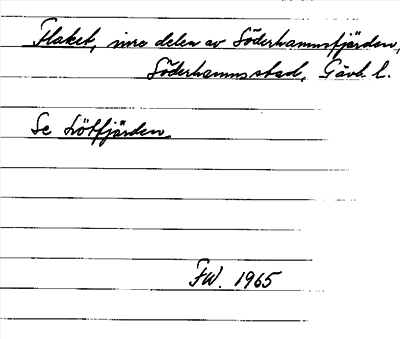 Flaket, inre delen av Söderhamnsfjärden,
Söderhamns stad, Gävh l.
Se Lötfjärden
FW. 1965